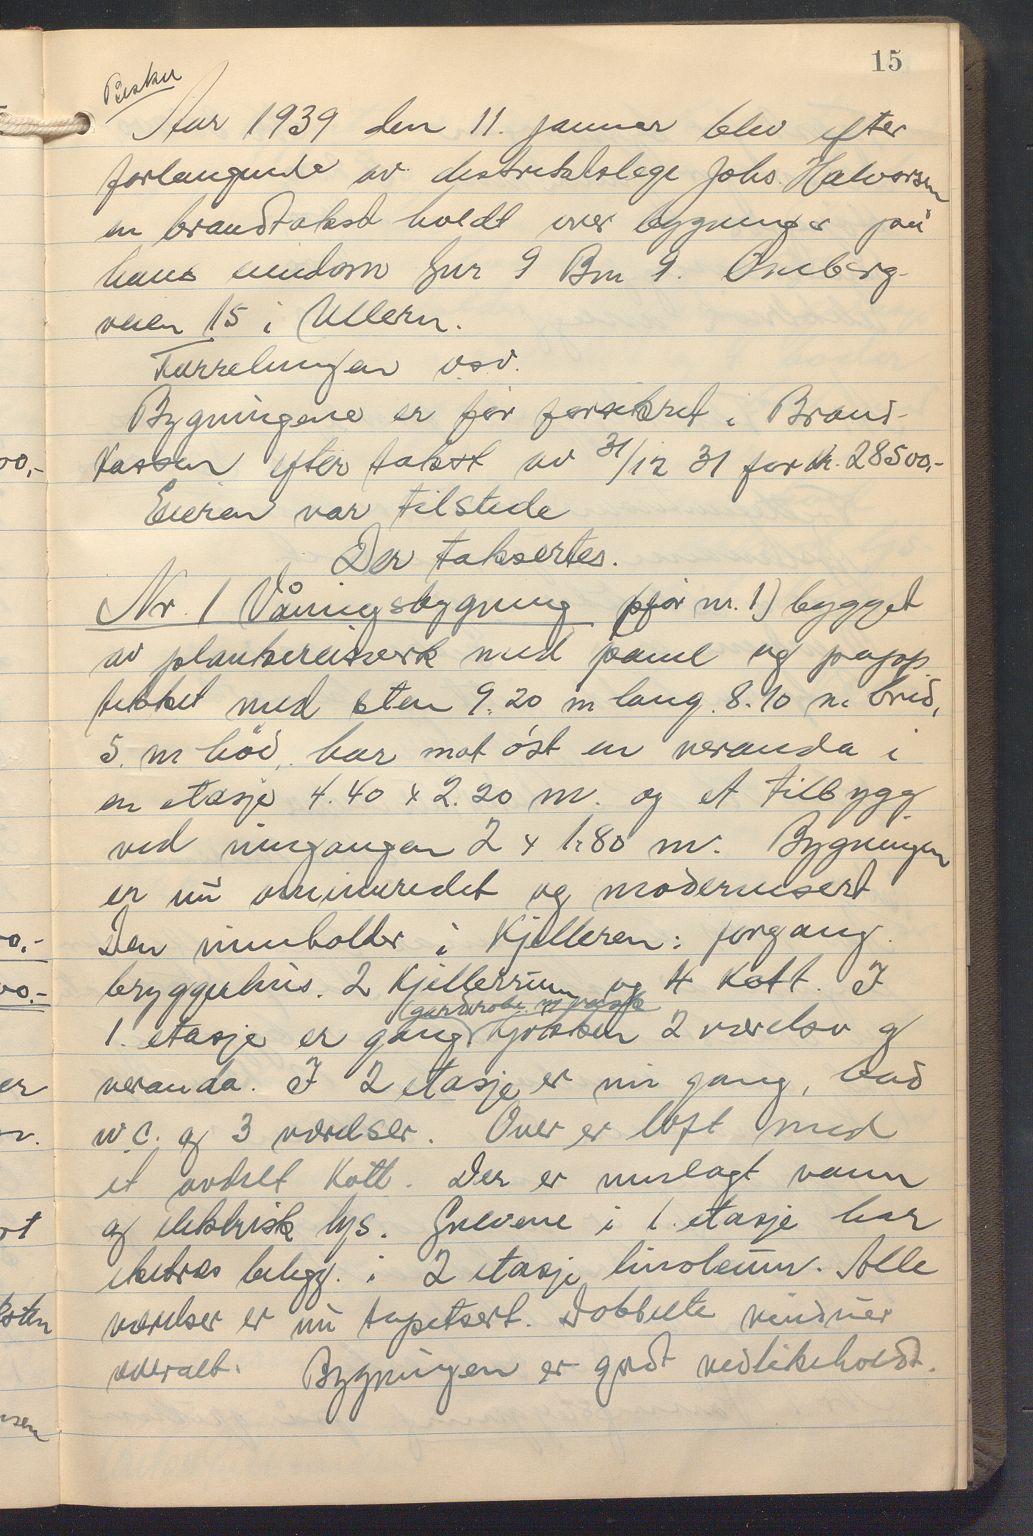 15
Aar 1939 den 11. januar blev efter
forlangende av distriktslege Johs. Halvorsen
en brandtakst holdt over bygninger paa
hans eiendom Gnr 9 Bnr 9.
veien 15 i Ullern.
osv.
Bygningene er før forsikret i Brand-
kassen efter takst av 31/12 31 for kr. 28500,-
Eieren var tilstede
Der taksertes.
Nr. 1 Våningsbygning (før nr. 1) bygget
av plankereisverk med panel og papp
tekket med sten 9.20 m lang 8.10 m bred,
5. m høi, har mot øst en veranda i
en etasje 4.40 x 2.20 m. og et tilbygg
ved inngangen 2 x 1.80 m. Bygningen
er nu ominnredet og modernisert
Den inneholder i Kjelleren: forgang
bryggerhus. 2 Kjellerrum og 4 Kott. I
(garderobe m vask
1. etasje er gang kjøkken 2 værelser og
veranda. I 2 etasje er gang, bad
w.c. og 3 værelser. Over er loft med
et avdelt Kott. Der er innlagt vann
og elektrisk lys. Gulvene i 1. etasje har
belegg. i 2 etasje linoleum. Alle
værelser er nu tapetsert. Dobbelte vinduer
overalt. Bygningen er godt vedlikeholdt.